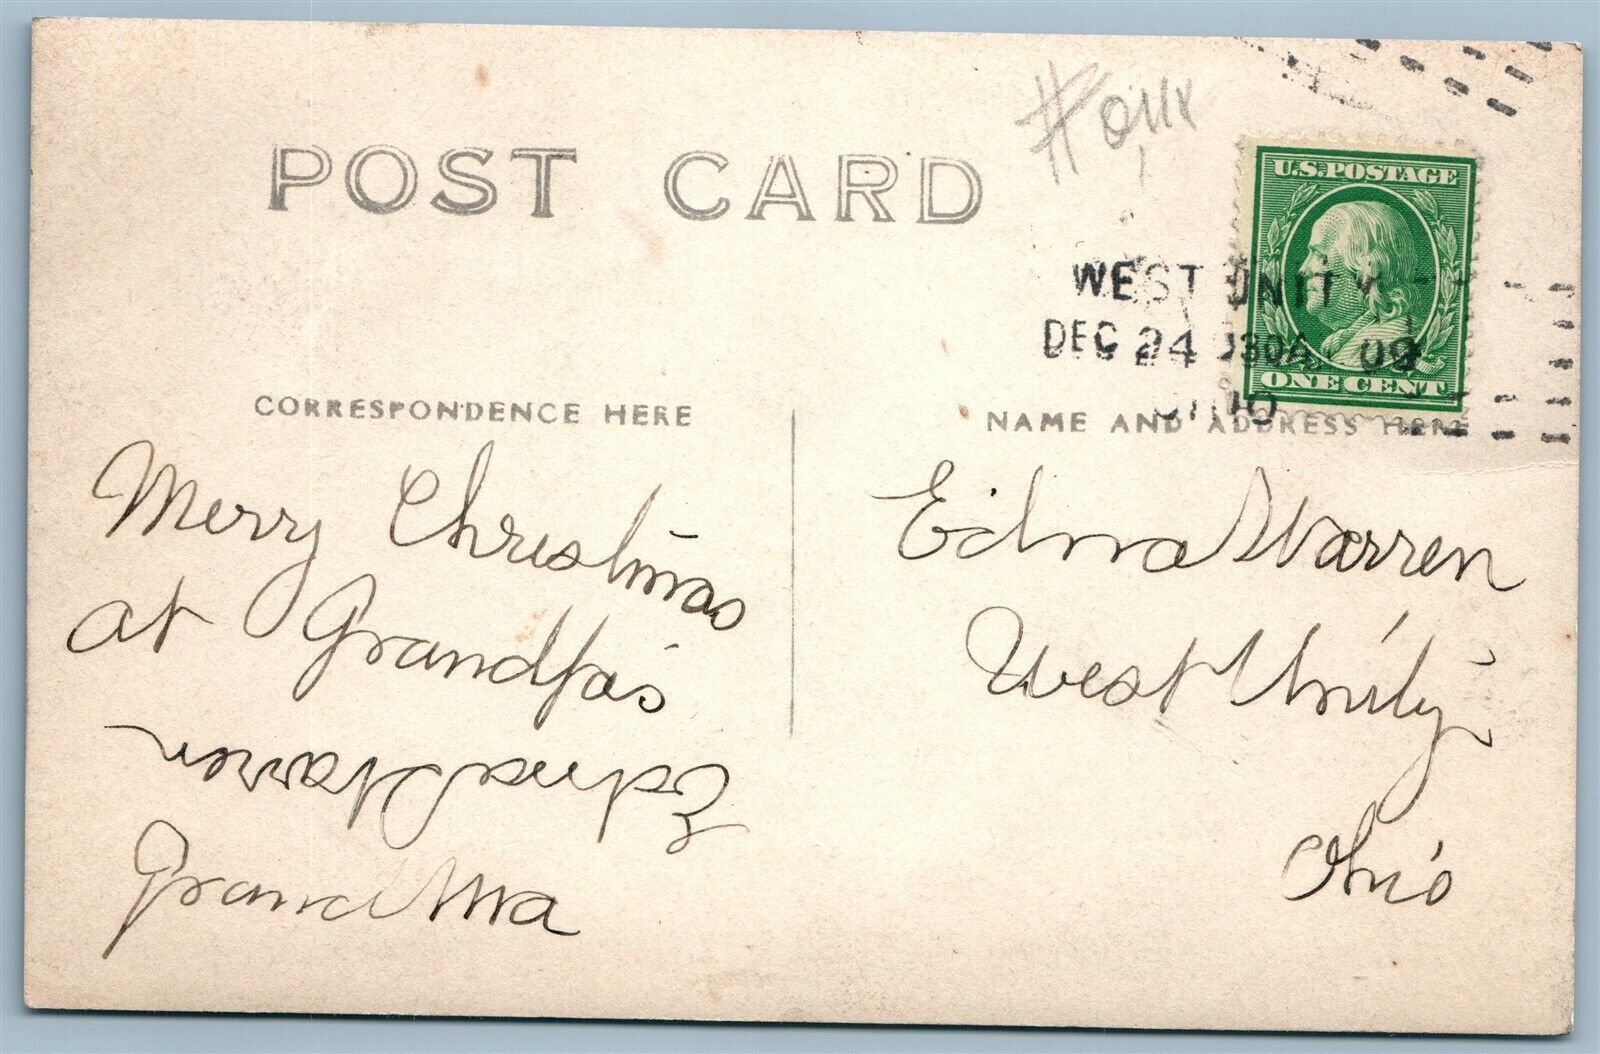 POST CARD
U.S. POSTAGE
ONE CENT
WEST UNITY
DEC 24 30A 09
OHIO
CORRESPONDENCE HERE
NAME AND ADDRESS HERE
Merry Christmas
at Grandpa's
Edna Warren
Grand Ma
Edna Warren
West Unity
Ohio